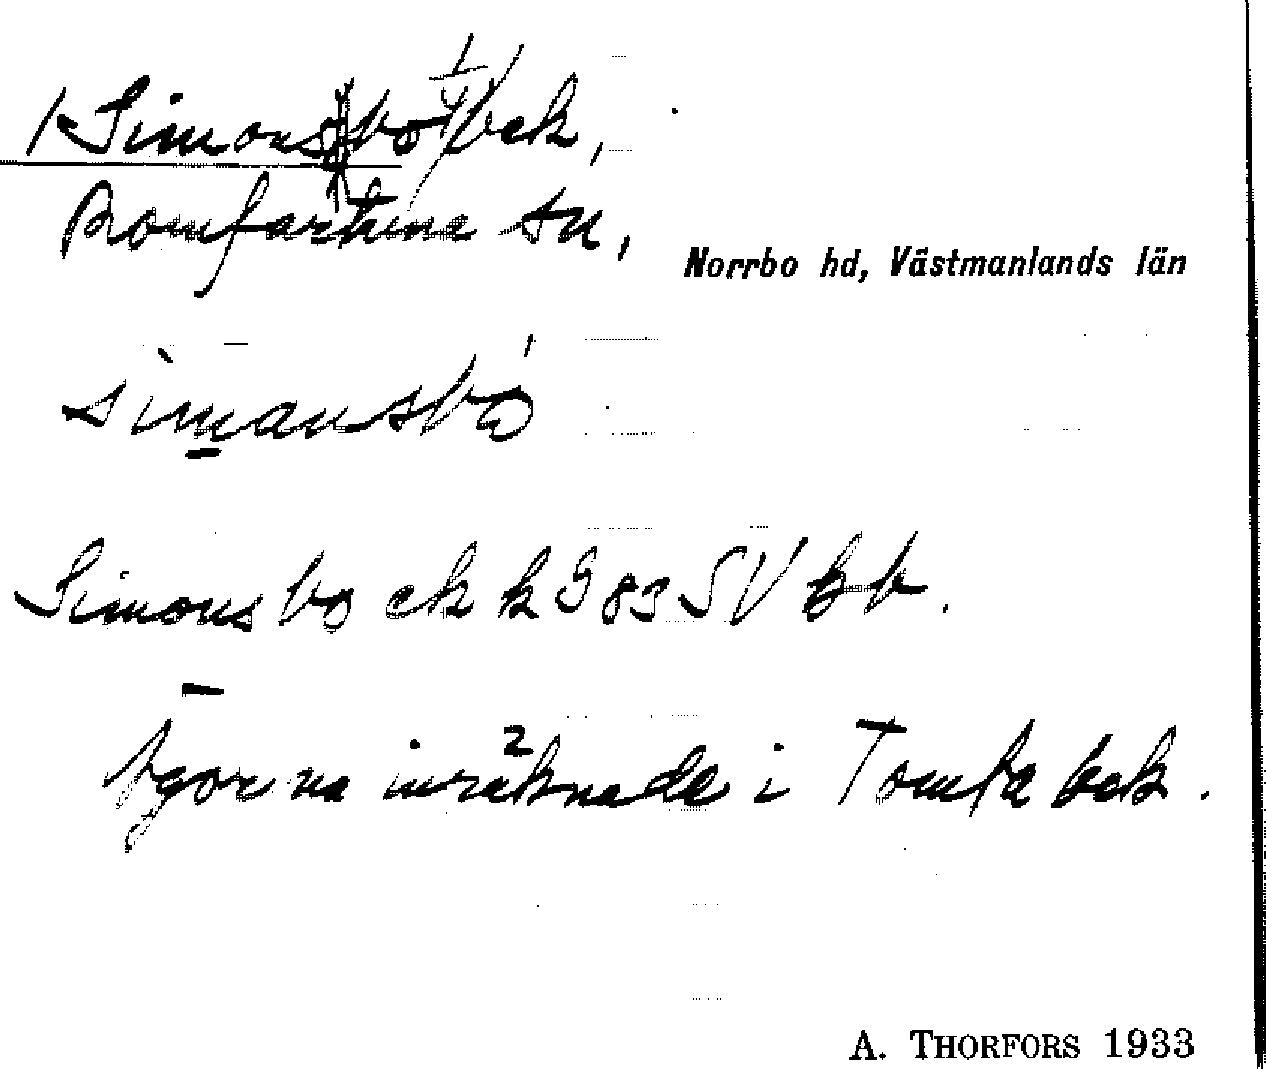 Simonsbo bek,
Romfartuna sn,
Norrbo hd, Västmanlands län
simansbo
Simonsbo ek k G 83 SV
Ägorna inräknade i Tomta bek.
A. THORFORS 1933